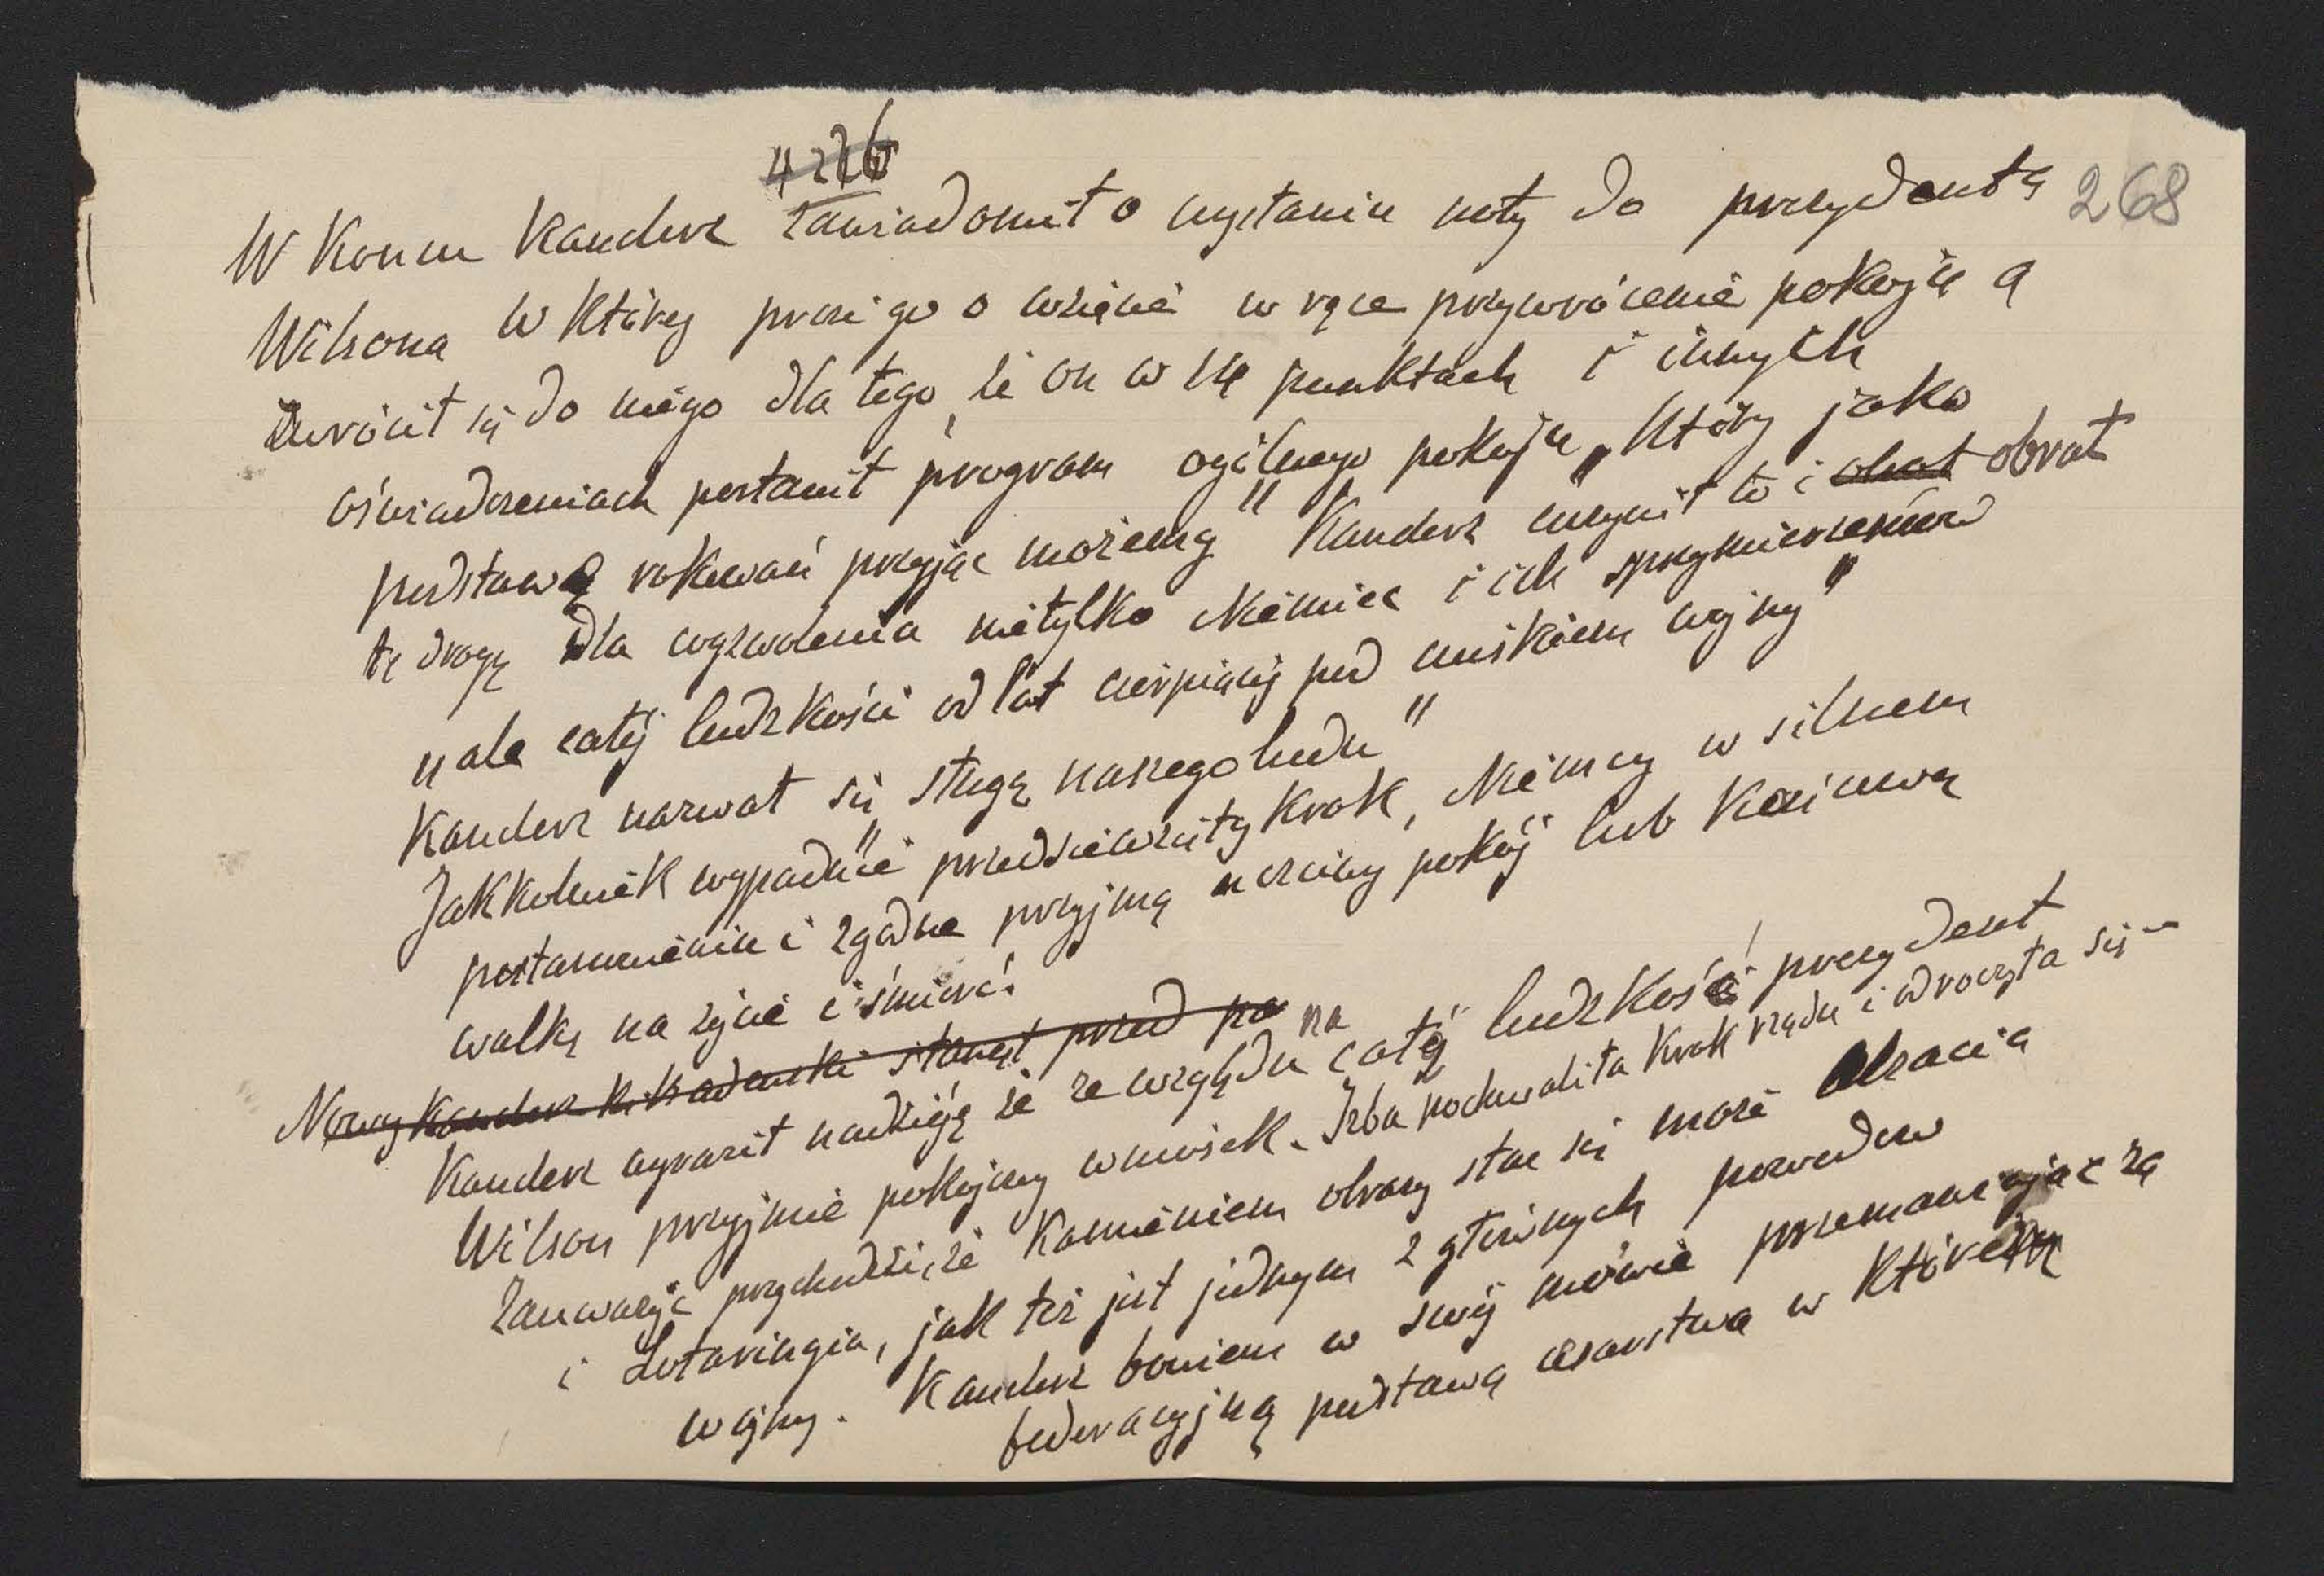 4226
268
W końcu kanclerz zawiadomił o wysłaniu noty do prezydenta
Wilsona w której prosi go o wzięcie w ręce przywrócenie pokoju a
zwrócił się do niego dla tego, że on w 14 punktach i innych
oświadczeniach postawił program ogólnego pokoju, „który jako
podstawę rokowań przyjąć możemy" Kanclerz uczynił to i obrał obrał
tę drogę dla wyzwolenia nietylko Niemiec i ich sprzymierzeńców
„ale całej ludzkości od lat cierpiącej pod uciskiem wojny"
Kanclerz nazwał się „sługą naszego ludu"
Jakkolwiek wypadnie przedsięwzięty krok, Niemcy w silnem
postanowieniu i zgodne przyjmą uczciwy pokój lub końcową
walkę na życie i śmierć.
Nowy kanclerz stanął przed pa
Kanclerz wyraził nadzieję że ze względu na całą ludzkość prezydent
Wilson przyjmie pokojowy wniosek. Izba pochwaliła krok rządu i odroczyła się –
Zauważyć przychodzi, że kamieniem obrazy stać się może Alzacja
i Lotaryngia, jak też jest jednym z głównych powodów
wojny. Kanclerz bowiem w swej mowie przemawiając za
federacyjną podstawą cesarstwa w którem